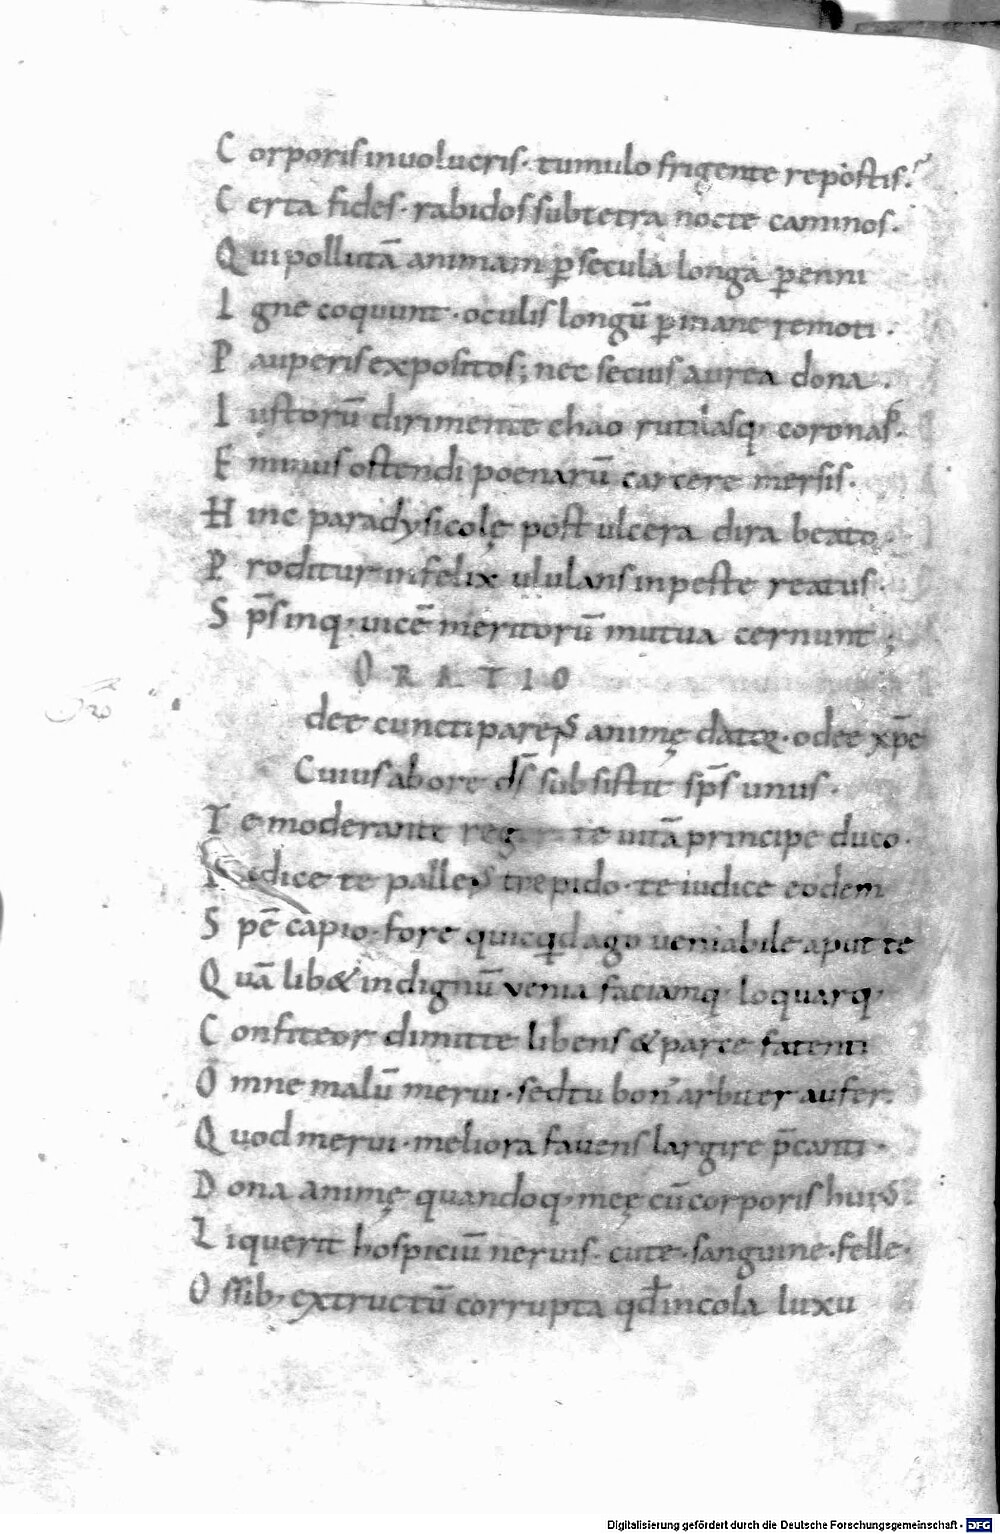 C orporis inuolucris· tumulo frigente repostis·
C erta fides· rabidos sub tetra nocte caminos·
Q ui pollutā animam ꝑ secula longa ꝑenni
I gne coquunt· oculis longū ꝑ inane remoti·
P auperis expositos; nec secius aurea dona·
I ustorū dirimente chao rutilasq; coronas·
E minus ostendi poenarū carcere mersis·
H inc paradysicolę post ulcera dira beato
P roditur infelix ululans in peste reatus·
S p̄s inq; uicē meritorū mutua cernunt;
ORATIO
dee cunctiparens animę dator· o dee xp̄e
Cuius ab ore ds̄ subsistit sp̄s unus·
T e moderante te uitā principe duco·
I udice te pallens trepido· te iudice eodem
S pē capio· fore quicqd ago ueniabile aput te
Q uā lib& indignū venia faciamq; loquarq;
C onfiteor dimitte libens & parce fatenti
O mne malū merui· sed tu bon' arbiter aufer
Q uod merui· meliora fauens largire p̄canti·
D ona animę quandoq; meę cū corporis huius
L iquerit hospiciū neruis· cute· sanguine· felle·
O ssib; extructū corrupta qd̄ incola luxu
Digitalisierung gefördert durch die Deutsche Forschungsgemeinschaft - DFG